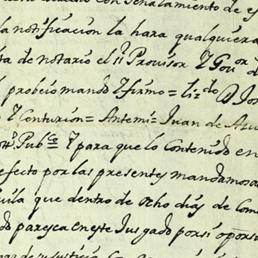 con señalamiento de es
la notificacion la hara qualquiera
ta de notario el sr Provisor y Gour
probeio mando y firmo = lizdo D Jos
y Conturion = Antemi = Juan de
Pubco = y para que lo Contenido en
efecto por las presentes mandamos a
que dentro de ocho dias de Como
parezca en este Juzgado por si o por su